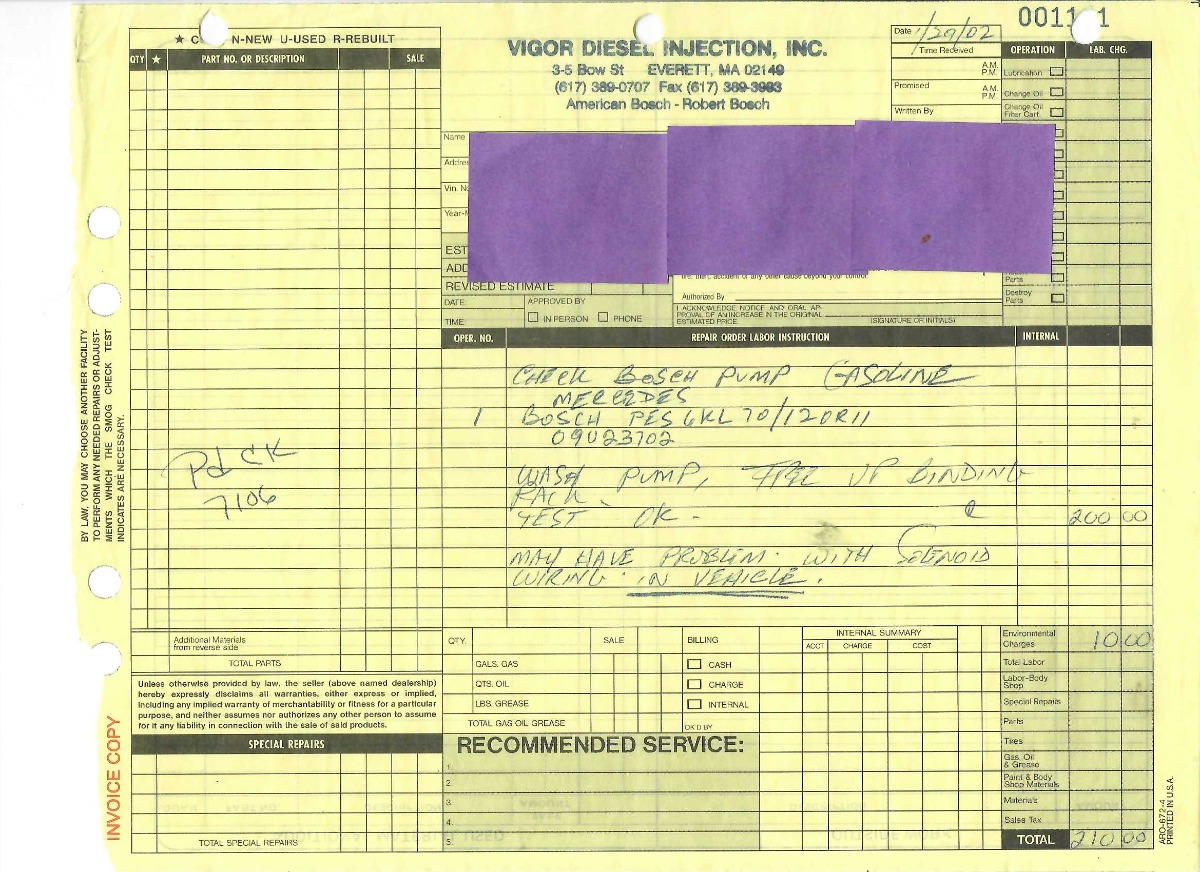 001131
★ C N-NEW U-USED R-REBUILT
QTY ★ PART NO. OR DESCRIPTION SALE
VIGOR DIESEL INJECTION, INC.
3-5 Bow St EVERETT, MA 02149
(617) 389-0707 Fax (617) 389-3993
American Bosch - Robert Bosch
Date 1/29/02
Time Received A.M. P.M.
Promised A.M. P.M.
Written By
OPERATION LAB. CHG.
Lubrication
Change Oil
Change Oil
Filter Cart.
Parts
Destroy
Parts
Name
Addre
Vin. N
Year-
EST
ADD
REVISED ESTIMATE
DATE:
TIME:
APPROVED BY
IN PERSON PHONE
fire, theft, accident or any other cause beyond your control
Authorized By
I ACKNOWLEDGE NOTICE AND ORAL AP-
PROVAL OF AN INCREASE IN THE ORIGINAL
ESTIMATED PRICE. (SIGNATURE OR INITIALS)
OPER. NO. REPAIR ORDER LABOR INSTRUCTION INTERNAL
CHECK BOSCH PUMP GASOLINE
MERCEDES
1 BOSCH PES6KL70/120R11
09023702
WASH PUMP, FREE UP BINDING
RACK.
TEST OK - 200 00
MAY HAVE PROBLEM WITH SOLENOID
WIRING IN VEHICLE.
Pd CK
7106
BY LAW, YOU MAY CHOOSE ANOTHER FACILITY
TO PERFORM ANY NEEDED REPAIRS OR ADJUST-
MENTS WHICH THE SMOG CHECK TEST
INDICATES ARE NECESSARY.
Additional Materials
from reverse side
TOTAL PARTS
Unless otherwise provided by law, the seller (above named dealership)
hereby expressly disclaims all warranties, either express or implied,
including any implied warranty of merchantability or fitness for a particular
purpose, and neither assumes nor authorizes any other person to assume
for it any liability in connection with the sale of said products.
SPECIAL REPAIRS
TOTAL SPECIAL REPAIRS
INVOICE COPY
QTY. SALE
GALS. GAS
QTS. OIL
LBS. GREASE
TOTAL GAS OIL GREASE
BILLING
CASH
CHARGE
INTERNAL
OK'D BY
INTERNAL SUMMARY
ACCT CHARGE COST
RECOMMENDED SERVICE:
1.
2.
3.
4.
5.
Environmental
Charges 10 00
Total Labor
Labor-Body
Shop
Special Repairs
Parts
Tires
Gas, Oil
& Grease
Paint & Body
Shop Materials
Materials
Sales Tax
TOTAL 210 00
ARO-672-4
PRINTED IN U.S.A.